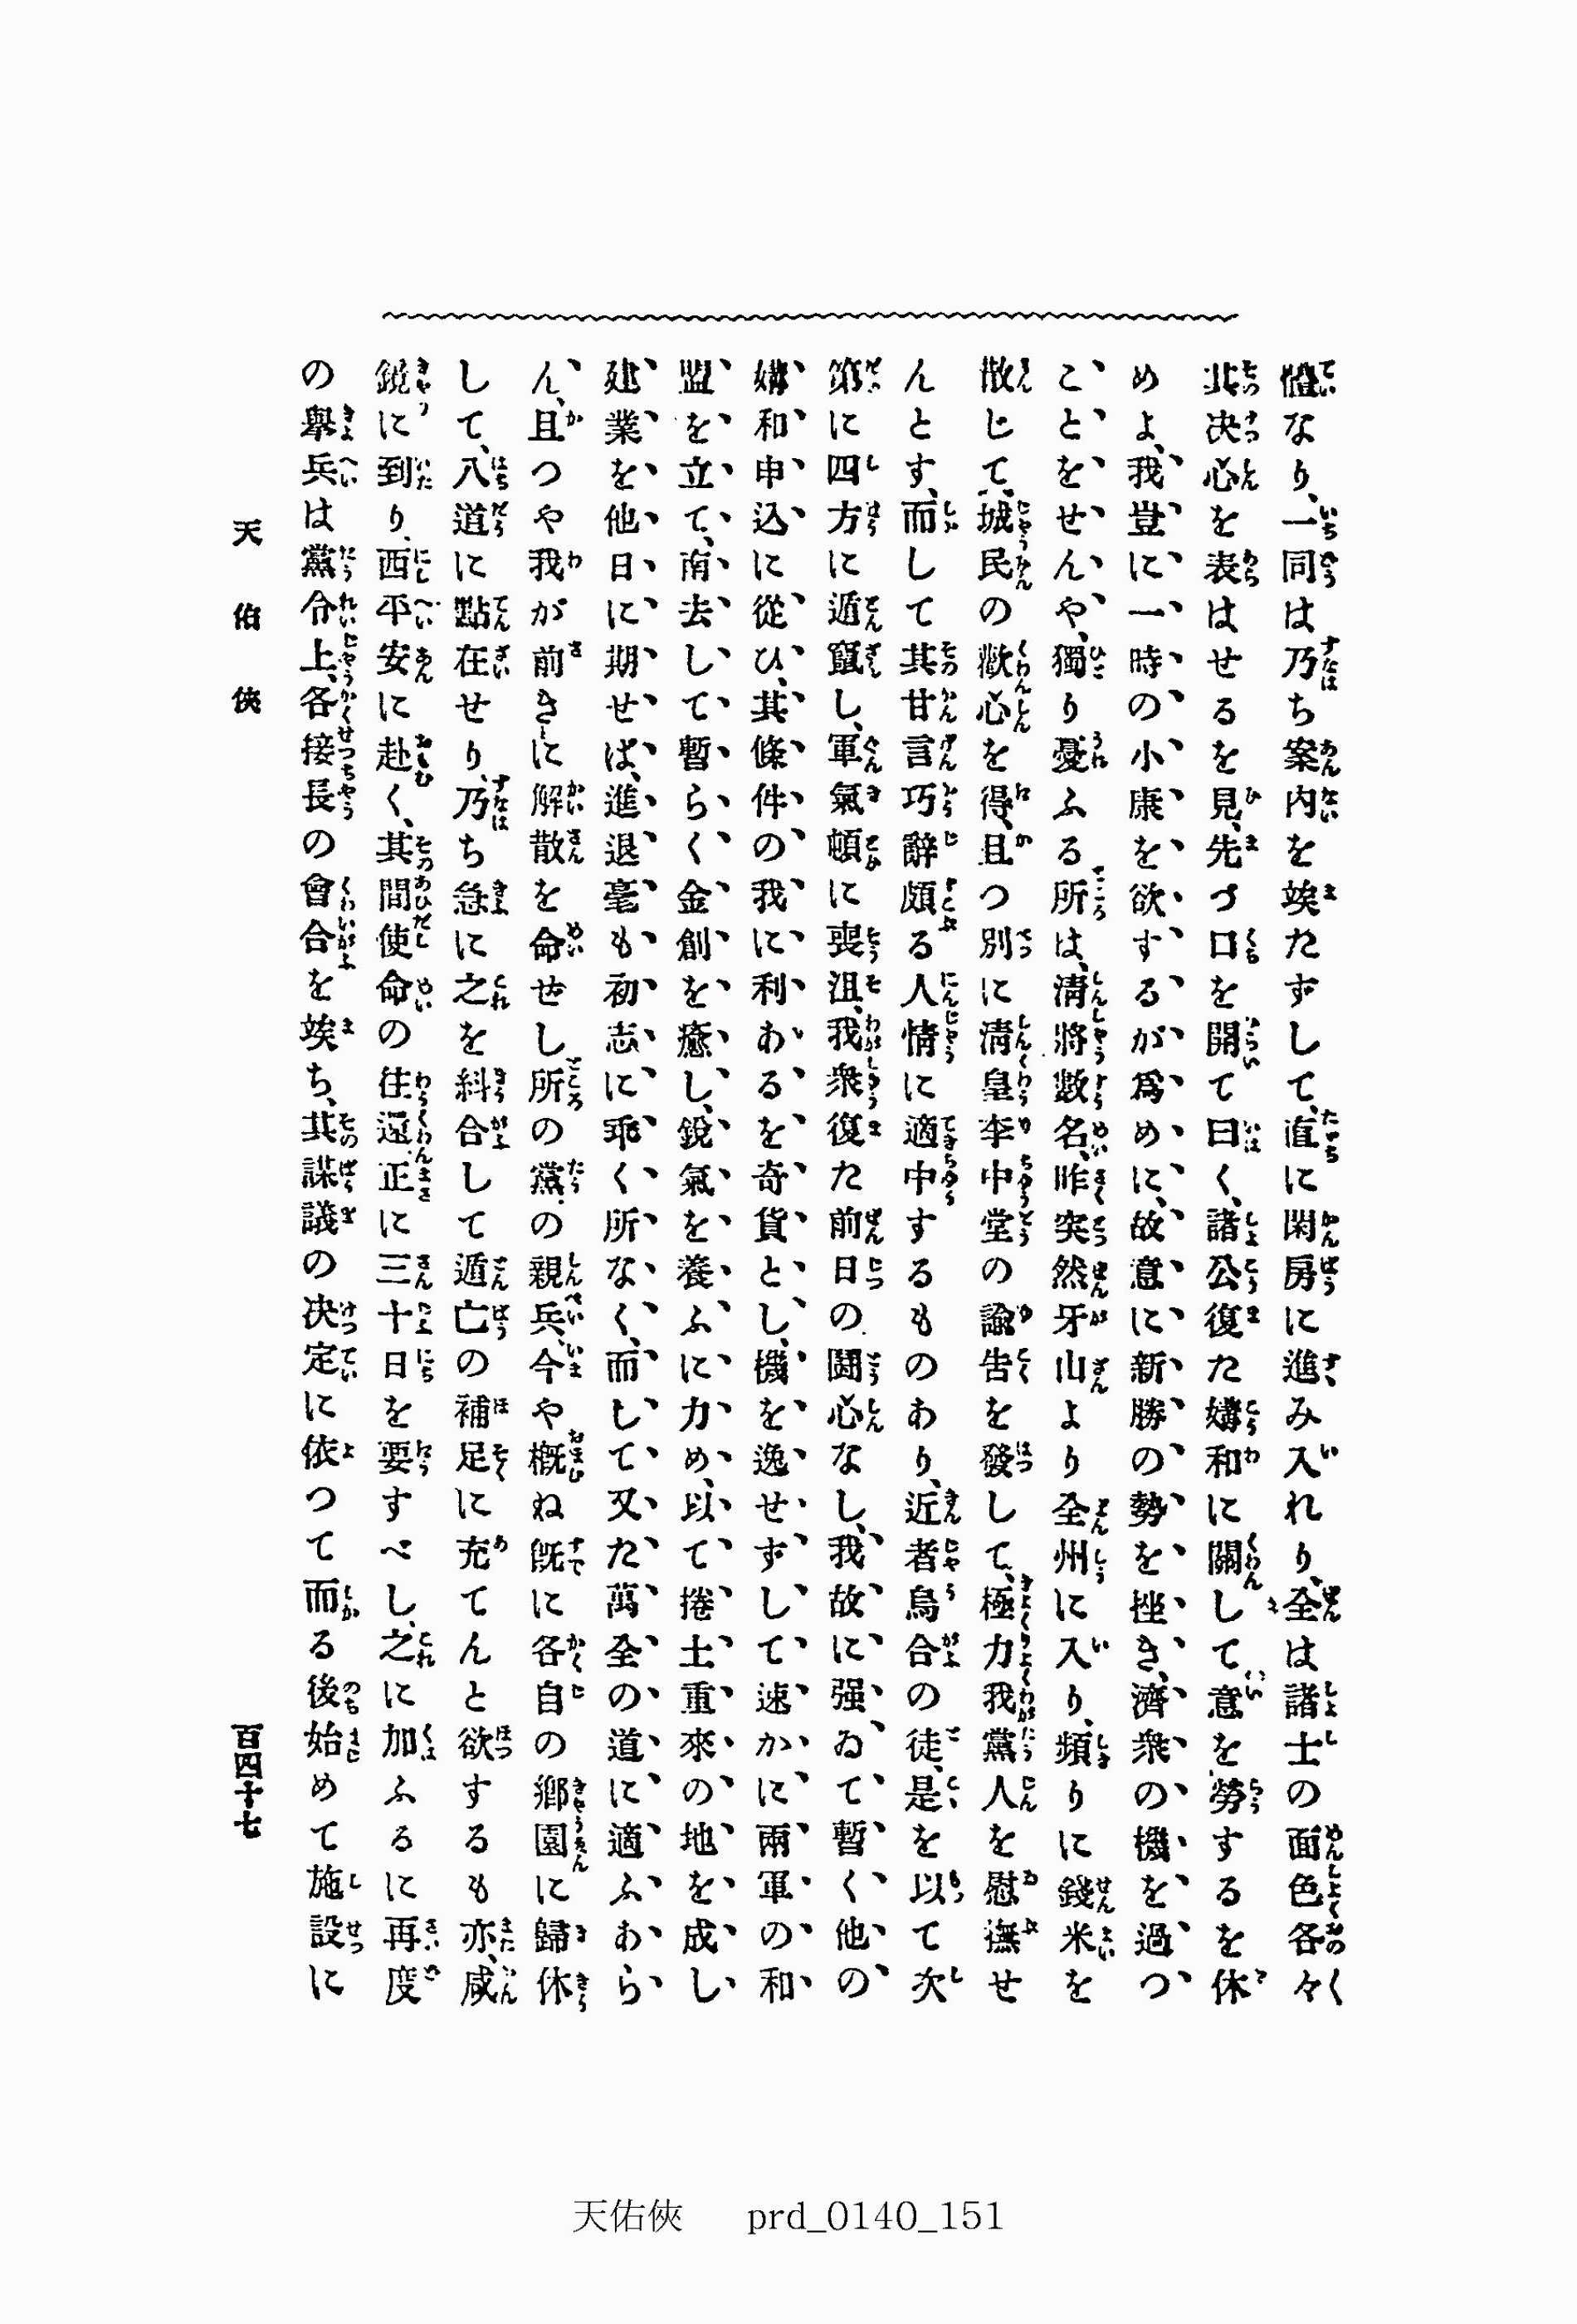 憕なり、一同は乃ち案内を竢たずして、直に閑房に進み入れり、全は諸士の面色各々
其决心を表はせるを見、先づ口を開て曰く、諸公復た媾和に關して意を勞するを休
めよ、我豈に一時の小康を欲するが爲めに、故意に新勝の勢を挫き、濟衆の機を過つ
ことをせんや、獨り憂ふる所は、淸將數名、昨突然牙山より全州に入り、頻りに錢米を
散じて、城民の歡心を得、且つ別に淸皇李中堂の諭告を發して、極力我黨人を慰撫せ
んとす、而して其甘言巧辭頗る人情に適中するものあり、近者烏合の徒、是を以て次
第に四方に遁竄し、軍氣頓に喪沮、我衆復た前日の鬪心なし、我故に强ゐて暫く他の
媾和申込に從ひ、其條件の我に利あるを奇貨とし、機を逸せずして速かに兩軍の和
盟を立て、南去して暫らく金創を癒し、鋭氣を養ふに力め、以て捲土重來の地を成し
建業を他日に期せば、進退毫も初志に乖く所なく、而して又た萬全の道に適ふあら
ん、且つや我が前きに解散を命せし所の黨の親兵、今や概ね既に各自の鄕園に歸休
して、八道に點在せり、乃ち急に之を糾合して遁亡の補足に充てんと欲するも亦、咸
鏡に到り、西平安に赴く、其間使命の往還正に三十日を要すべし、之に加ふるに再度
の擧兵は黨令上、各接長の會合を竢ち、其謀議の决定に依つて而る後始めて施設に
天佑俠
百四十七
天佑俠 prd_0140_151